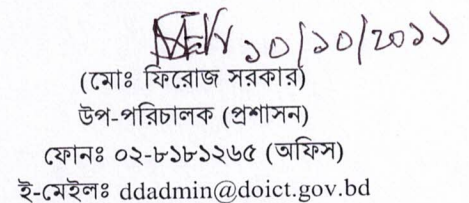 ১০/১০/২০১১
(মোঃ ফিরোজ সরকার)
উপ-পরিচালক (প্রশাসন)
ফোনঃ ০২-৮১৮১২৬৫ (অফিস)
ই-মেইলঃ ddadmin@doict.gov.bd